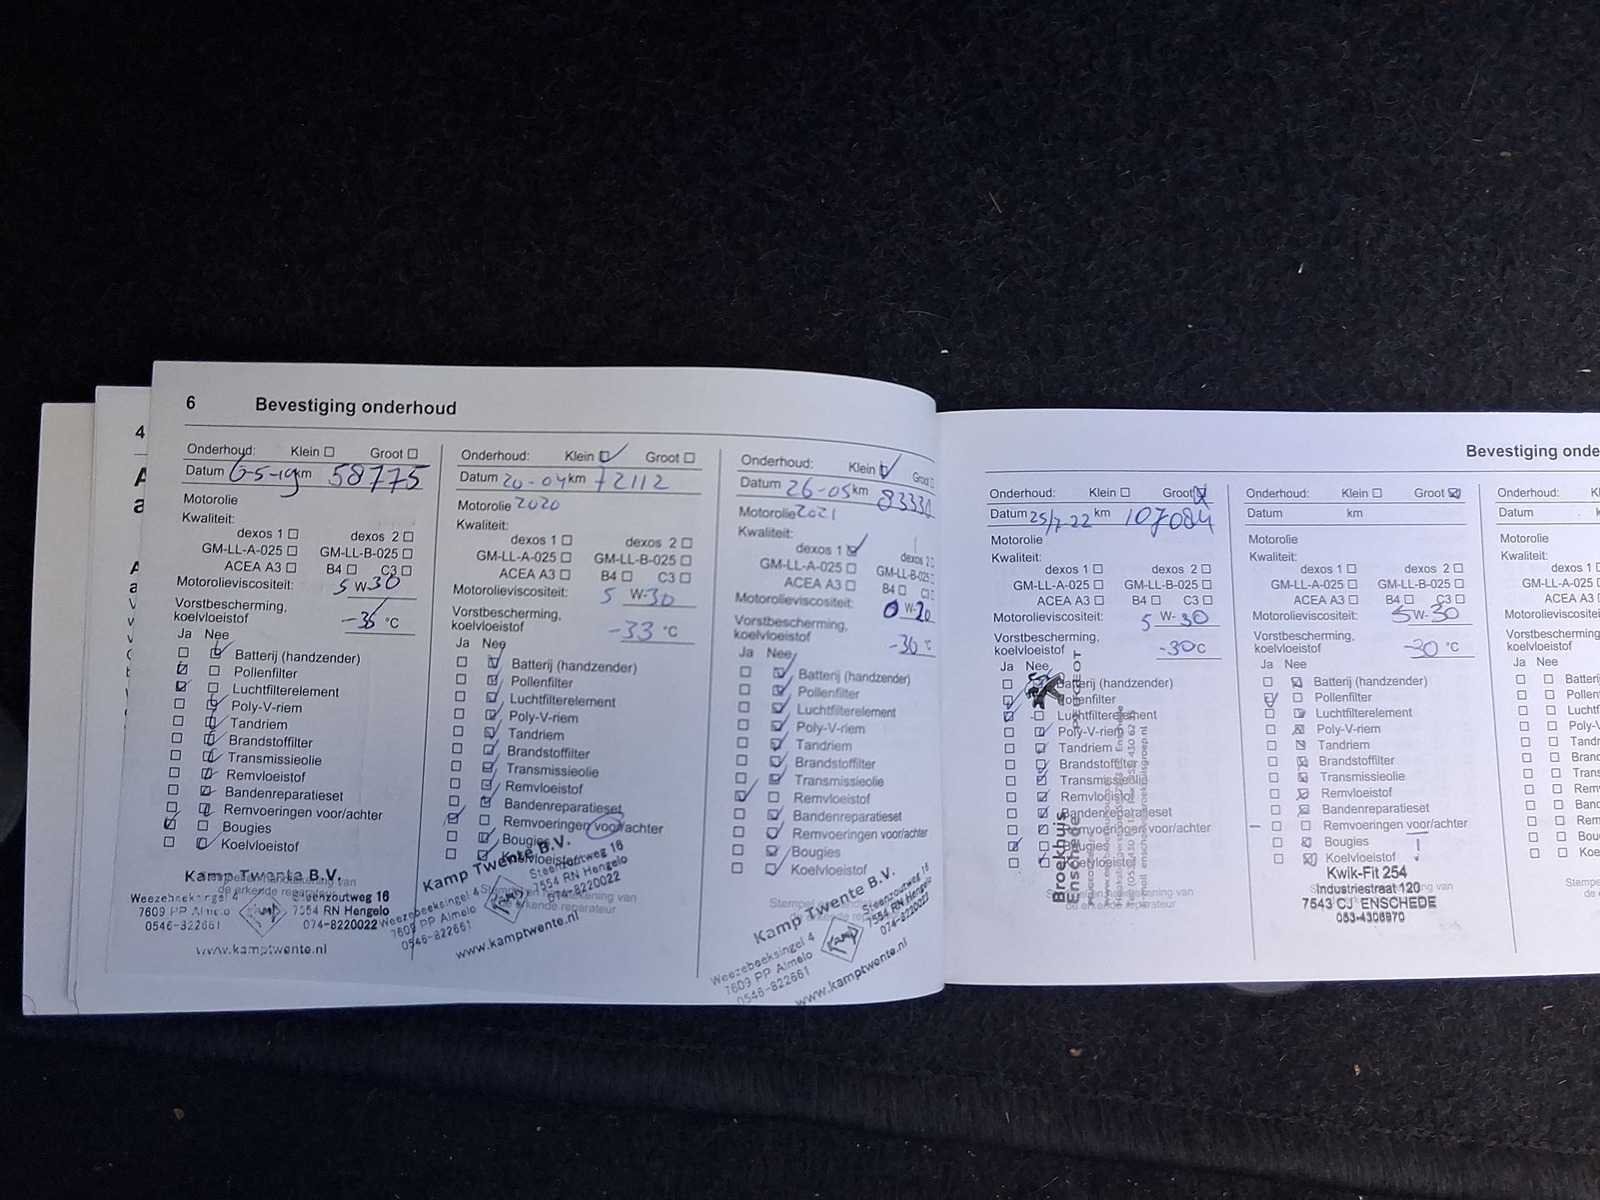 4
6 Bevestiging onderhoud
Onderhoud: Klein Groot
Datum 6-5-19 km 58775
Motorolie
Kwaliteit:
dexos 1 dexos 2
GM-LL-A-025 GM-LL-B-025
ACEA A3 B4 C3
Motorolieviscositeit: 5 W-30
Vorstbescherming,
koelvloeistof -35 °C
Ja Nee
Batterij (handzender)
Pollenfilter
Luchtfilterelement
Poly-V-riem
Tandriem
Brandstoffilter
Transmissieolie
Remvloeistof
Bandenreparatieset
Remvoeringen voor/achter
Bougies
Koelvloeistof
Kamp Twente B.V.
de erkende reparateur
Weezebeeksingel 4 Steenzoutweg 16
7609 PP Almelo 7554 RN Hengelo
0546-822661 074-8220022
www.kamptwente.nl
Onderhoud: Klein Groot
Datum 20-04 km 72112
Motorolie 2020
Kwaliteit:
dexos 1 dexos 2
GM-LL-A-025 GM-LL-B-025
ACEA A3 B4 C3
Motorolieviscositeit: 5 W-30
Vorstbescherming,
koelvloeistof -33 °C
Ja Nee
Batterij (handzender)
Pollenfilter
Luchtfilterelement
Poly-V-riem
Tandriem
Brandstoffilter
Transmissieolie
Remvloeistof
Bandenreparatieset
Remvoeringen voor/achter
Bougies
Koelvloeistof
Kamp Twente B.V.
de erkende reparateur
Weezebeeksingel 4 Steenzoutweg 16
7609 PP Almelo 7554 RN Hengelo
0546-822661 074-8220022
www.kamptwente.nl
Onderhoud: Klein Groot
Datum 26-05 km 83330
Motorolie 2021
Kwaliteit:
dexos 1 dexos 2
GM-LL-A-025 GM-LL-B-025
ACEA A3 B4 C3
Motorolieviscositeit: 0 W-20
Vorstbescherming,
koelvloeistof -36 °C
Ja Nee
Batterij (handzender)
Pollenfilter
Luchtfilterelement
Poly-V-riem
Tandriem
Brandstoffilter
Transmissieolie
Remvloeistof
Bandenreparatieset
Remvoeringen voor/achter
Bougies
Koelvloeistof
Kamp Twente B.V.
Weezebeeksingel 4 Steenzoutweg 16
7609 PP Almelo 7554 RN Hengelo
0546-822661 074-8220022
www.kamptwente.nl
Bevestiging onde
Onderhoud: Klein Groot
Datum 25/7-22 km 107084
Motorolie
Kwaliteit:
dexos 1 dexos 2
GM-LL-A-025 GM-LL-B-025
ACEA A3 B4 C3
Motorolieviscositeit: 5 W-30
Vorstbescherming,
koelvloeistof -30 C
Ja Nee
Batterij (handzender)
Pollenfilter
Luchtfilterelement
Poly-V-riem
Tandriem
Brandstoffilter
Transmissieolie
Remvloeistof
Bandenreparatieset
Remvoeringen voor/achter
Bougies
Koelvloeistof
Broekhuis
Enschede
PEUGEOT
de erkende reparateur
Onderhoud: Klein Groot
Datum km
Motorolie
Kwaliteit:
dexos 1 dexos 2
GM-LL-A-025 GM-LL-B-025
ACEA A3 B4 C3
Motorolieviscositeit: 5 W-30
Vorstbescherming,
koelvloeistof -30 °C
Ja Nee
Batterij (handzender)
Pollenfilter
Luchtfilterelement
Poly-V-riem
Tandriem
Brandstoffilter
Transmissieolie
Remvloeistof
Bandenreparatieset
Remvoeringen voor/achter
Bougies !
Koelvloeistof
Kwik-Fit 254
Industriestraat 120
7543 CJ ENSCHEDE
053-4306970
Onderhoud: Kl
Datum
Motorolie
Kwaliteit:
dexos 1
GM-LL-A-025
ACEA A3
Motorolieviscositeit
Vorstbescherming
koelvloeistof
Ja Nee
Batteri
Pollen
Luchtf
Poly-V
Tandr
Brand
Trans
Remv
Band
Remv
Bou
Koe
Stempe
de